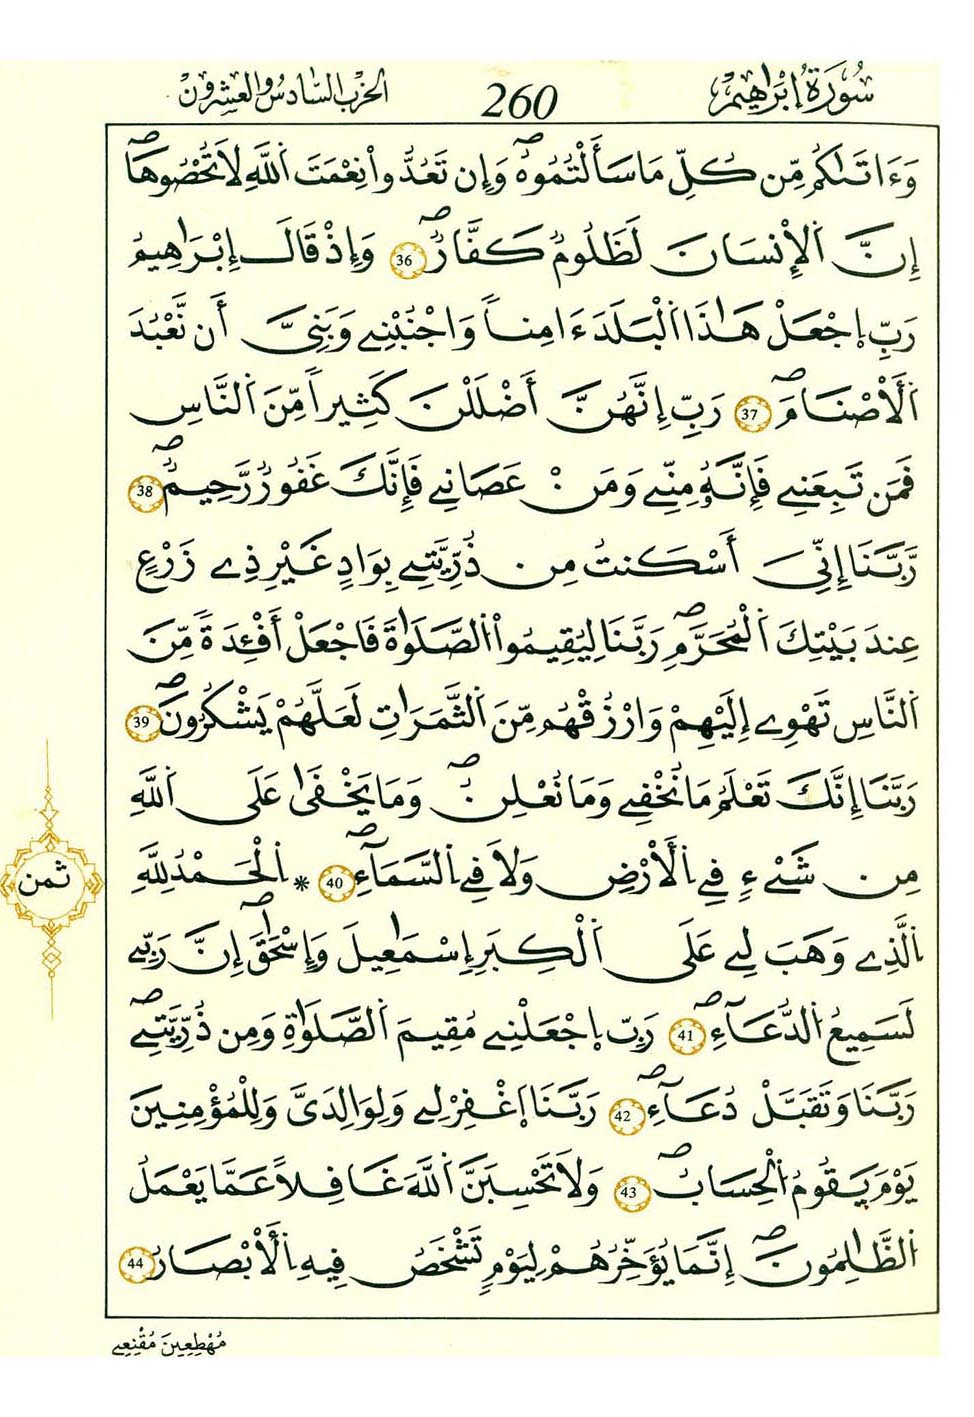 سُورَةُ إِبْرَٰهِيمَ 260 الحزب السادس والعشرون
وَءَاتَيٰكُم مِّن كُلِّ مَا سَأَلْتُمُوهُۖ وَإِن تَعُدُّواْ نِعْمَتَ اَللَّهِ لَا تُحْصُوهَاۖ
إِنَّ اَلْإِنسَانَ لَظَلُومٌ كَفَّارٌۖ 36 وَإِذْ قَالَ إِبْرَٰهِيمُ
رَبِّ اِجْعَلْ هَٰذَا اَلْبَلَدَ ءَامِناً وَاجْنُبْنِے وَبَنِيَّ أَن نَّعْبُدَ
اَلْأَصْنَامَۖ 37 رَبِّ إِنَّهُنَّ أَضْلَلْنَ كَثِيراً مِّنَ اَلنَّاسِ
فَمَن تَبِعَنِے فَإِنَّهُۥ مِنِّے وَمَنْ عَصَانِے فَإِنَّكَ غَفُورٌ رَّحِيمٌۖ 38
رَّبَّنَا إِنِّيَ أَسْكَنتُ مِن ذُرِّيَّتِے بِوَادٍ غَيْرِ ذِے زَرْعٍ
عِندَ بَيْتِكَ اَلْمُحَرَّمِۖ رَبَّنَا لِيُقِيمُواْ اُلصَّلَوٰةَ فَاجْعَلْ أَفْئِدَةً مِّنَ
اَلنَّاسِ تَهْوِے إِلَيْهِمْ وَارْزُقْهُم مِّنَ اَلثَّمَرَٰتِ لَعَلَّهُمْ يَشْكُرُونَۖ 39
رَبَّنَا إِنَّكَ تَعْلَمُ مَا نُخْفِے وَمَا نُعْلِنُۖ وَمَا يَخْفَيٰ عَلَى اَللَّهِ
مِن شَےْءٍ فِے اِلْأَرْضِ وَلَا فِے اِلسَّمَآءِۖ 40 * اِلْحَمْدُ لِلَّهِ
اِلَّذِے وَهَبَ لِے عَلَى اَلْكِبَرِ إِسْمَٰعِيلَ وَإِسْحَٰقَۖ إِنَّ رَبِّے
لَسَمِيعُ اُلدُّعَآءِۖ 41 رَبِّ اِجْعَلْنِے مُقِيمَ اَلصَّلَوٰةِ وَمِن ذُرِّيَّتِےۖ
رَبَّنَا وَتَقَبَّلْ دُعَآءِۖ 42 رَبَّنَا اَغْفِرْ لِے وَلِوَالِدَيَّ وَلِلْمُؤْمِنِينَ
يَوْمَ يَقُومُ اُلْحِسَابُۖ 43 وَلَا تَحْسِبَنَّ اَللَّهَ غَافِلاً عَمَّا يَعْمَلُ
اُلظَّٰلِمُونَۖ إِنَّمَا يُؤَخِّرُهُمْ لِيَوْمٍ تَشْخَصُ فِيهِ اِلْأَبْصَارُ 44
ثمن
مُهْطِعِينَ مُقْنِعِے